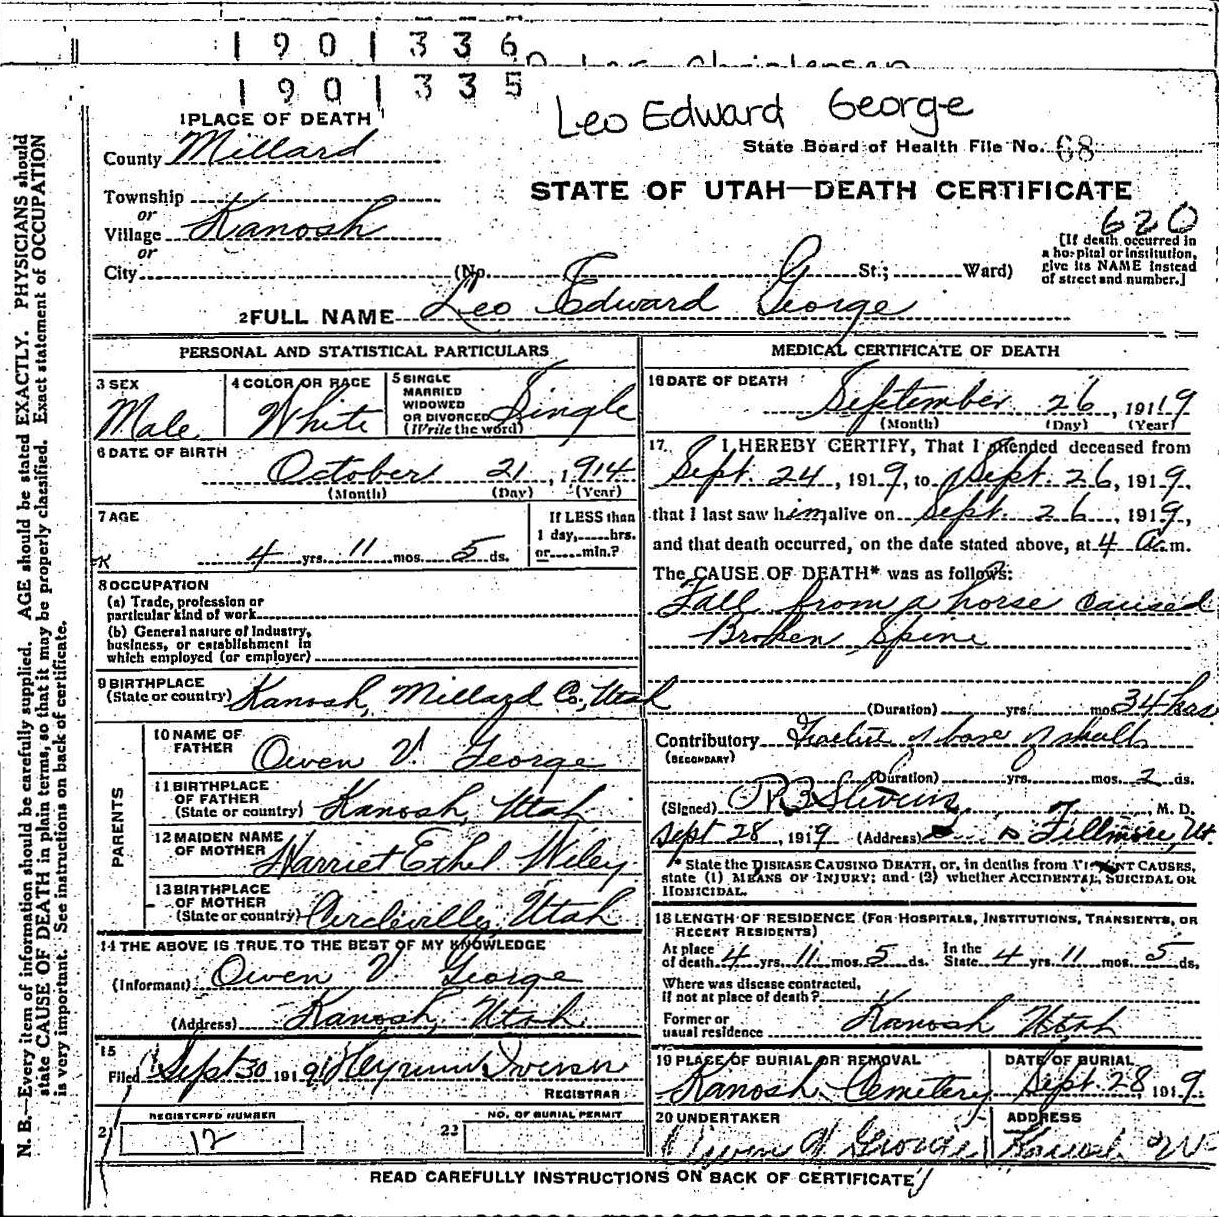 1 9 0 1 3 3 6
1 9 0 1 3 3 5
Leo Edward George
State Board of Health File No. 68
STATE OF UTAH—DEATH CERTIFICATE
620
[If death occurred in
a hospital or institution,
give its NAME instead
of street and number.]
1 PLACE OF DEATH
County Millard
Township
or
Village Kanosh
or
City (No. St.; Ward)
2 FULL NAME Leo Edward George
PERSONAL AND STATISTICAL PARTICULARS
3 SEX
Male
4 COLOR OR RACE
White
5 SINGLE
MARRIED
WIDOWED
OR DIVORCED
(Write the word)
Single
6 DATE OF BIRTH
October 21, 1914
(Month) (Day) (Year)
7 AGE
4 yrs. 11 mos. 5 ds.
If LESS than
1 day, hrs.
or min.?
8 OCCUPATION
(a) Trade, profession or
particular kind of work
(b) General nature of Industry,
business, or establishment in
which employed (or employer)
9 BIRTHPLACE
(State or country) Kanosh, Millard Co., Utah
PARENTS
10 NAME OF
FATHER Owen V. George
11 BIRTHPLACE
OF FATHER
(State or country) Kanosh, Utah
12 MAIDEN NAME
OF MOTHER Harriet Ethel Wiley
13 BIRTHPLACE
OF MOTHER
(State or country) Circleville, Utah
14 THE ABOVE IS TRUE TO THE BEST OF MY KNOWLEDGE
(Informant) Owen V. George
(Address) Kanosh, Utah
15
Filed Sept 30 1919
REGISTRAR
REGISTERED NUMBER
12
NO. OF BURIAL PERMIT
22
MEDICAL CERTIFICATE OF DEATH
16 DATE OF DEATH
September 26, 1919
(Month) (Day) (Year)
17. I HEREBY CERTIFY, That I attended deceased from
Sept. 24, 1919, to Sept. 26, 1919,
that I last saw him alive on Sept. 26, 1919,
and that death occurred, on the date stated above, at 4 a.m.
The CAUSE OF DEATH* was as follows:
Fall from a horse caused
Broken Spine
(Duration) yrs. mos. 34 hrs
Contributory Fracture of base of skull
(SECONDARY)
(Duration) yrs. mos. 2 ds.
(Signed) Stevens M. D.
Sept 28, 1919 (Address) Fillmore, Ut.
* State the DISEASE CAUSING DEATH, or, in deaths from VIOLENT CAUSES,
state (1) MEANS OF INJURY; and (2) whether ACCIDENTAL, SUICIDAL OR
HOMICIDAL.
18 LENGTH OF RESIDENCE (FOR HOSPITALS, INSTITUTIONS, TRANSIENTS, OR
RECENT RESIDENTS)
At place
of death 4 yrs. 11 mos. 5 ds.
In the
State 4 yrs. 11 mos. 5 ds.
Where was disease contracted,
if not at place of death?
Former or
usual residence Kanosh Utah
19 PLACE OF BURIAL OR REMOVAL
Kanosh Cemetery
DATE OF BURIAL
Sept. 28, 1919.
20 UNDERTAKER
Owen V George
ADDRESS
Kanosh Ut
READ CAREFULLY INSTRUCTIONS ON BACK OF CERTIFICATE
N. B.—Every item of information should be carefully supplied. AGE should be stated EXACTLY. PHYSICIANS should
state CAUSE OF DEATH in plain terms, so that it may be properly classified. Exact statement of OCCUPATION
is very important. See instructions on back of certificate.